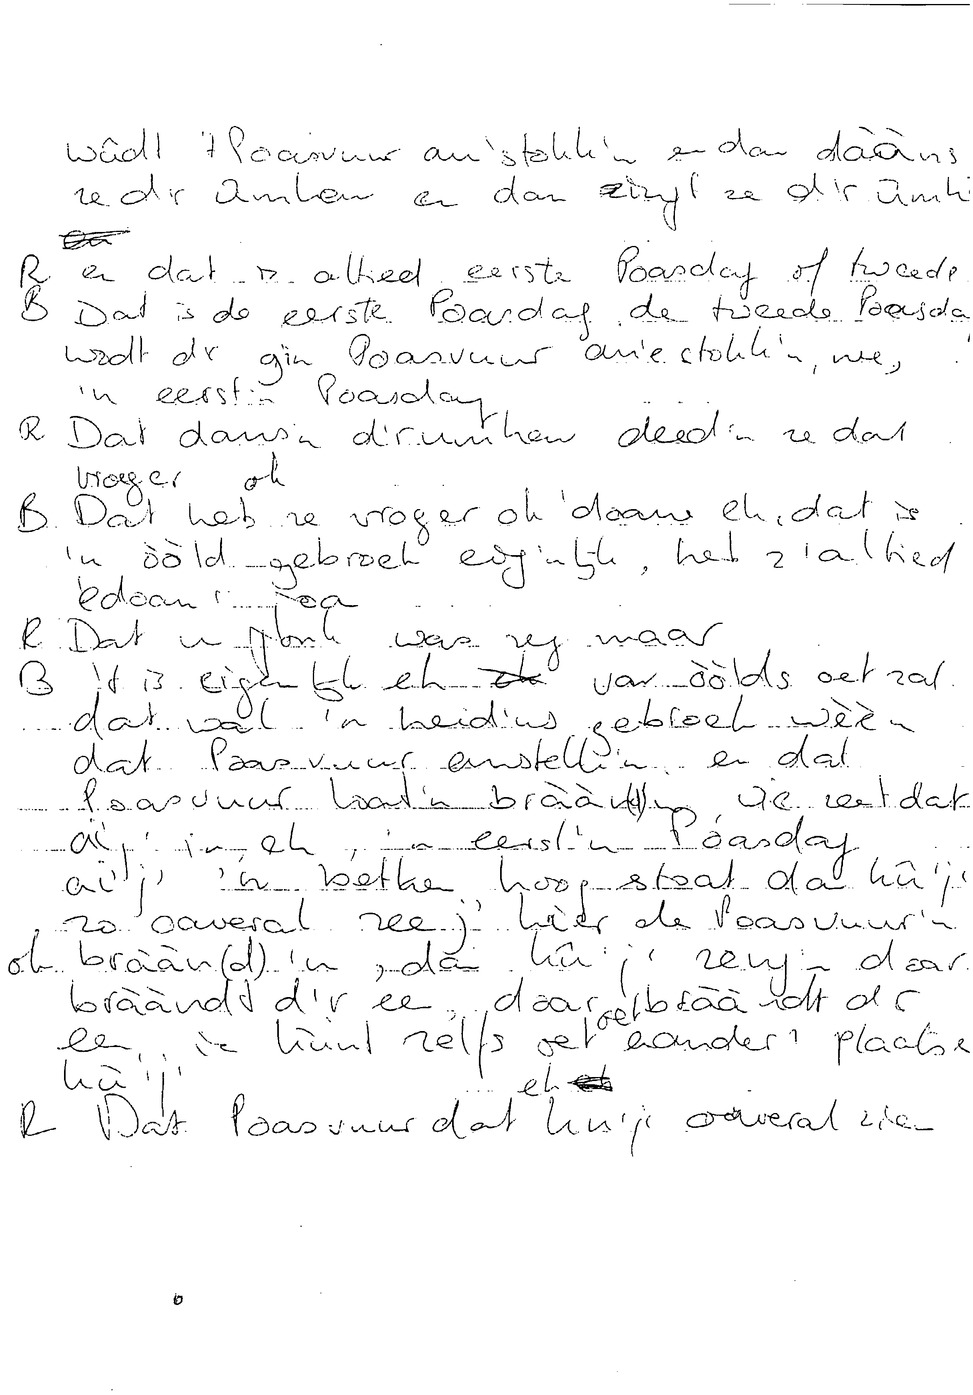 wûdt 't Poasvuur an'stokk'n en dan dààns
ze d'r ûmhen en dan zing't ze d'r ûmh
R en dat is altied eerste Poasdag of tweede
B Dat is de eerste Poasdag de tweede Poasda
wodt d'r gin Poasvuur an'estokk'n, nee,
'n eerst'n Poasdag
R Dat dans'n d'rumhen deed'n ze dat
vroeger ok
B Dat heb ze vroger ok 'doane eh, dat is
'n òòld gebroek eig'nlijk, heb z' altied
'edoan joa
R Dat was zeg maar
B it is eigenlijk eh van òòlds oet zal
dat wal 'n heidins gebroek wèèn
dat Poasvuur anstekk'n en dat
Poasvuur loat'n bràànd'n, ie zeet dat
ai'j' in, eh, 'n eerst'n Poasdag
ai'j' 'n betken hoog stoat dan kû'j'
zo oaveral zee j' hier de Poasvuur'n
ok bràân(d)'n, dan kû'j' zeng'n daar
bràândt d'r ee, daar bràândt d'r
een, ie kûnt zelfs oet eander' plaatse
kû'j' eh
R Dat Poasvuur dat ku'j' oaveral zien